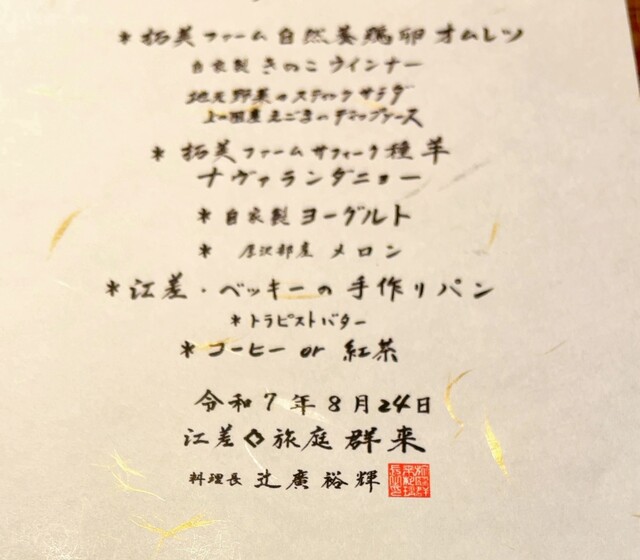 * 拓美ファーム自然養鶏卵オムレツ
自家製きのこウインナー
地元野菜のスティックサラダ
上ノ国産えごまのディップソース
* 拓美ファームサフォーク種羊
ナヴァランダニョー
* 自家製ヨーグルト
* 厚沢部産 メロン
* 江差・ベッキーの手作りパン
* トラピストバター
* コーヒー or 紅茶
令和7年8月24日
江差◇旅庭 群来
料理長 辻廣裕輝